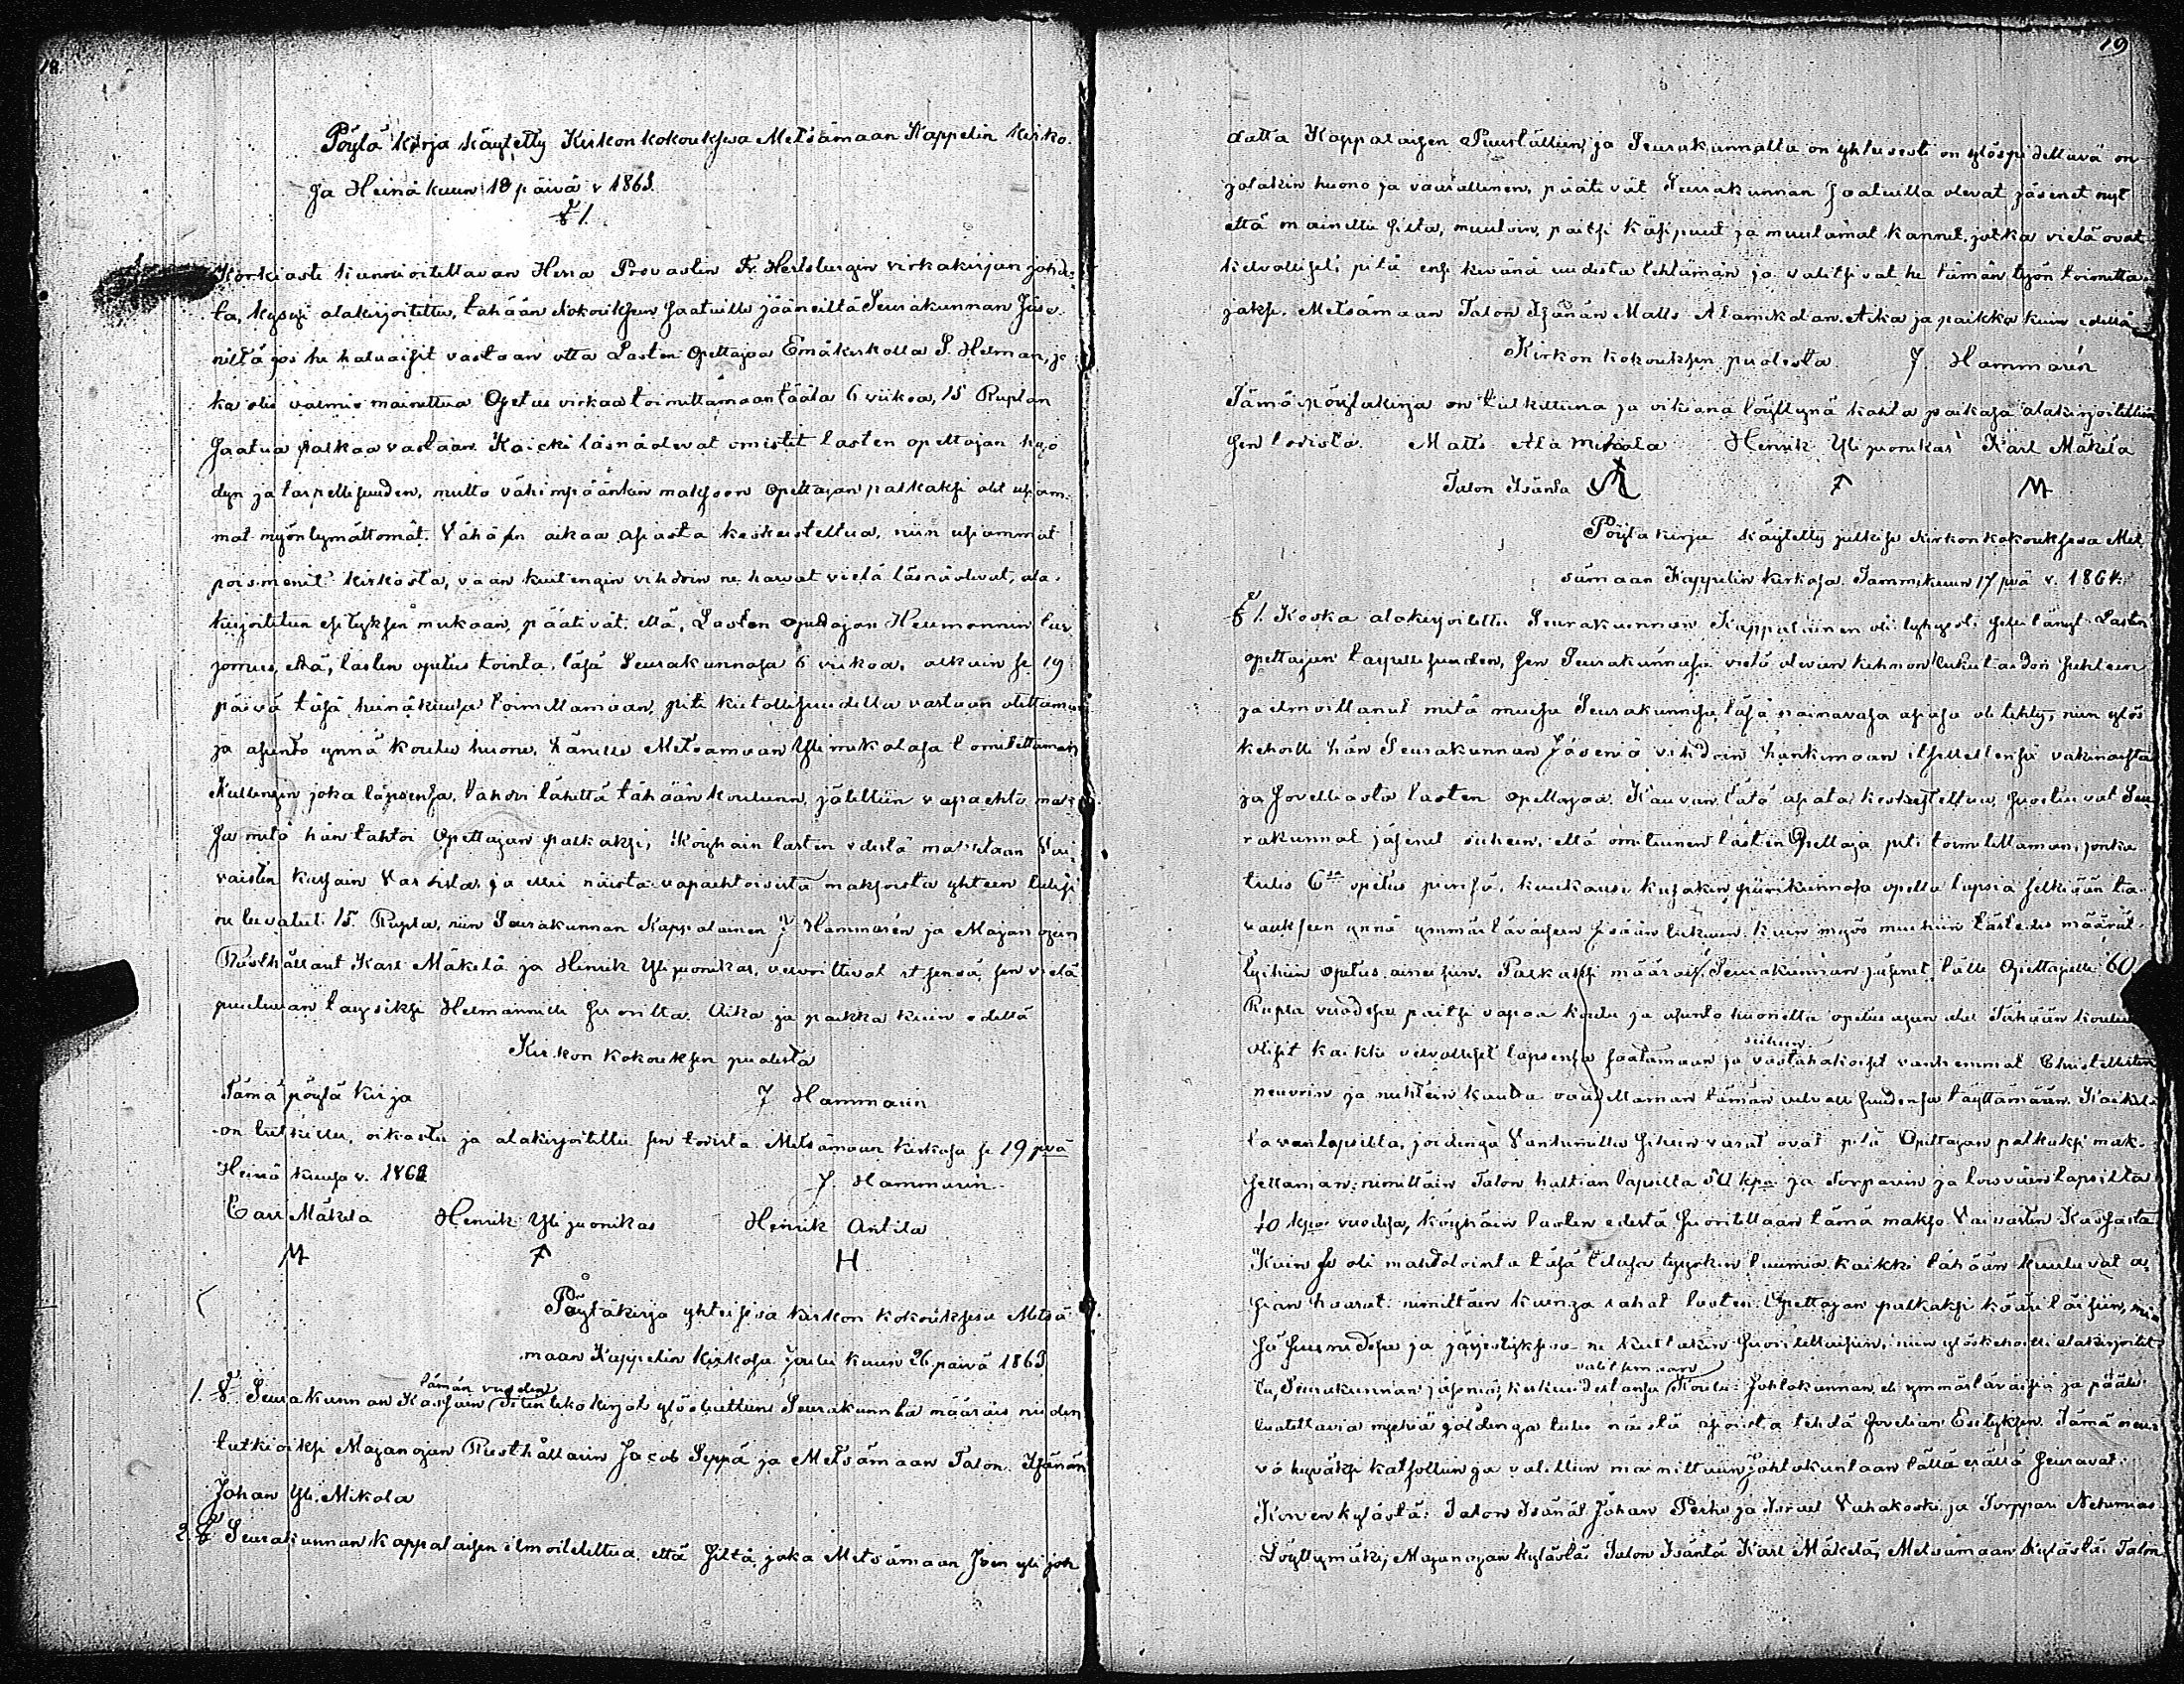 18.
Pöytä kirja käytetty Kirkon kokouksesa Metsämaan Kappelin Kirko.
sa Heinäkuun 18 päivä v 1863.
§ 1.
Korkiasti kunnioitettavan Herra Provastin Fr. Hertsbergin virkakirjan johdo-
ta, kysyi alakirjoitettu, tähään Kokouksen saatuilla jääneiltä Seurakunnan Jäse-
niltä jos he haluaisit vastaan otta Lasten Opettajaa Emäkirkolla S. Helman, jo-
ka olis valmis mainittua Opetus virkaa toimittamaan tääla 6 viikoa, 15 Ruplan
saatua palkaa vastaan. Kaicki läsnäolevat omistit lasten opettajan hyö-
dyn ja tarpellisuuden, mutta vähimpäänkin maksoon Opettajan palkaksi olit usiam-
mat myöntymättömät. Vähän aikaa asiasta keskusteltua, niin usiammat
pois menit kirkosta, vaan kuitengin vihdoin ne harvat vielä läsnäolevat, ala-
kirjoitetun esityksen mukaan, päätivät, että, Lasten Opettajan Helmannin tar-
jomus, että, lasten opetus tointa, täsä Seurakunnasa 6 viikoa, alkain se 19
päivä täsä heinäkuusa toimittamaan, piti kiitollisuudella vastaan otettaman
ja asunto ynnä koulu huone, hänelle Metsämaan Ylimikolasa toimitettaman
Kullengin joka lapsensa, tahtoi lähettä tähään kouluun, jätettiin vapaehto mak-
sa mitä hän tahtoi Opettajan palkaksi, Köyhäin lasten edestä maksetaan Vai-
vaisten kassain varoista, ja ellei näistä vapaehtoisista maksoista yhteen tulisi
ne luvatut 15 Rupla, niin Seurakunnan Kappalainen J Hammarén ja Majanojan
Rusthållarit Karl Mäkelä ja Henrik Yli juonikas, velvoittivat itsensä, sen vielä
puuttuvan täysiksi Helmannille suoritta. Aika ja paikka kuin edellä
Kirkon kokouksen puolesta
Tämä pöytä kirja J Hammarén
on tutkittu, oikastu ja alakirjoitettu sen todista Metsämaan kirkosa se 19 pvä
Heinä kuusa v. 1863 J. Hammarén
Carl Mäkela Henrik Yli juonikas Henrik Antila
M H
Pöytäkirja yhteisesä kirkon kokouksesa Metsä-
maan Kappelin Kirkosa Joulu kuun 26 päivä 1863.
tämän vuoden
1. § Seurakunnan Kassain Tilinteko kirjat ylösluettuns Seurakunda määräis niiden
tutkioiksi Majanojan Rusthållarin Jacob Seppä ja Metsämaan Talon Isänän
Johan Yli Mikola
2. § Seurakunnan kappalaisen ilmoitettua, että Siltä, joka Metsämaan Joen yli joh-
19
datta Kappalaisen Puuställiin ja Seurakunnalta on yhteisesti on ylöspidettävä on
jotakin huono ja vaarallinen, päätivät Seurakunnan saatuilla olevat jäsenet nyt
että mainittu silta, muutoin, paitsi käsipuut ja muutamat kannet, jotka vielä ovat
kelvolliset, pitä ensi kevänä uudista tehtämän ja valitsivat he tämän työn toimitta-
jaksi. Metsämaan Talon Isänän Matts Alamikolan. Aika ja paikka kuin edellä
Kirkon kokouksen puolesta. J. Hammarén
Tämä pöytäkirja on tutkittuna ja oikiana löyttynä kahta paikasa alakirjoitettiin
sen todista. Matts Ala Mikola Henrik Yli juonikas Karl Mäkelä
Talon Isäntä M
Pöytäkirja käytetty julkise kirkonkokouksesa Met-
sämaan Kappelin kirkosa Tammikuun 17 pvä v. 1864.
§ 1. Koska alakirjoitettu Seurakunnan Kappalainen oli lyhyesti selittänyt Lasten
opettajan tarpellisuuden, sen Seurakunnasa vielä olevan kehnon lukutaidon suhteen
ja ilmoittanut mitä muisa Seurakunnisa, täsä painavasa asiasa oli tehty, niin ylös
kehoitti hän Seurakunnan Jäseniä vihdoin hankimaan itsellellensä vakinaista
ja sovelliasta lasten opettajaa. Kauvan tätä asiata keskusteltua, suostuivat Seu-
rakunnat jäsenet siihen, että ominainen lasten Opettaja piti toimitettaman, jonka
tulis 6:sa opetus piirisä, kuukausi kusakin piirikunnasa opetta lapsia selkiään ta-
vaukseen ynnä ymmärtäväiseen sisään lukuun. kuin myös muihin tästedes määrät-
tyihin opetus aineisiin. Palkaksi määräsi Seurakunnan jäsenet tälle Opettajalle 60
Rupla vuodesa paitsi vapaa koulu ja asunto huonetta opetus ajan alel Tähään kouluu
siihen
olisit kaikki velvolliset lapsensa saatamaan ja vastahakoiset vanhemmat Christillisten
neuvoin ja nuhtein kautta vaadittaman tämän velvollisuudensa täyttämään. Kaikilta
tavanlapsilta, joidenga Vanhemilla siihen varat ovat pitä Opettajan palkaksi mak-
settaman: nimittäin Talon haltian lapsilta 50 kpa: ja Torparin ja loisväen lapsilta
40 kpa: vuodesa, köyhäin lasten edestä suoritettaan tämä makso Vaivasten Kassasta
Kuin se oli mahdotointa täsä tilasa tyysikin tuumia kaikki tähään kuuluvat a-
sian haarat: nimittäin kuinga rahat lasten Opettajan palkaksi kääritäisiin, mi-
sä suuruudesa ja järjestyksesa ne kullakin suoritettaisiin, niin ylöskehoitti alakirjoitet-
valitseman
tu, Seurakunnan jäseniä, keskuudestansa Koulu-Johtokunnan, eli ymmärtäväisiä ja pääti
luotettavia miehiä joidenga tulis näistä asioista tehdä sovelian Esityksen. Tämä neu-
vo hyväksi katsottiin ja valittiin mainittuun Johtokuntaan tällä erällä seuravat.
Korvenkylästä: Talon Isänät Johan Perho ja Israel Vahakoski ja Torppari Nehemias
Löyttymäki, Majanojan kylästä: Talon Isäntä Karl Mäkelä, Metsämaan kylästä: Talon